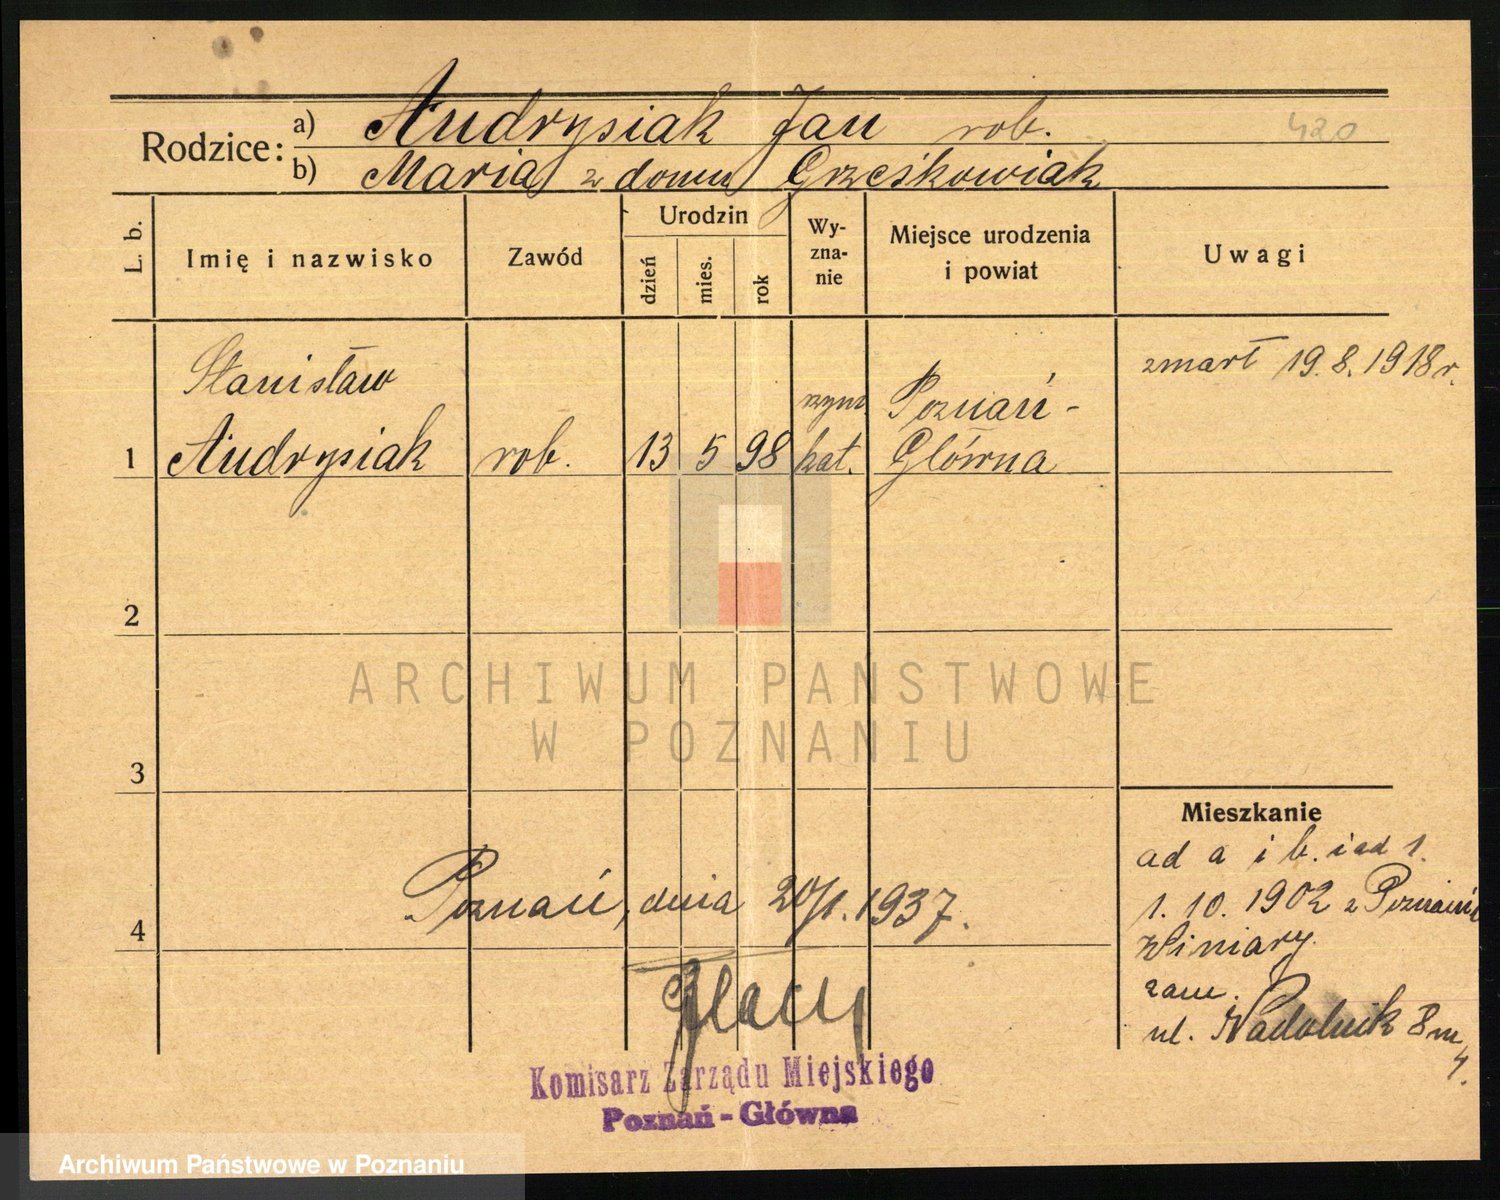 Rodzice: a) Andrysiak Jan rob. 420
b) Maria z domu Grześkowiak
L. b. Imię i nazwisko Zawód Urodzin dzień mies. rok Wy-zna-nie Miejsce urodzenia i powiat Uwagi
Stanisław rzym Poznań- zmarł 19.8.1918 r.
1 Andrysiak rob. 13 5 98 kat. Główna
2
3
Mieszkanie
ad a i b. i ad 1.
4 Poznań, dnia 20/1. 1937. 1. 10. 1902 z Poznania
Winiary
zam.
ul. Nadolnik 8 m
4.
Komisarz Zarządu Miejskiego
Poznań-Główna
ARCHIWUM PAŃSTWOWE
W POZNANIU
Archiwum Państwowe w Poznaniu